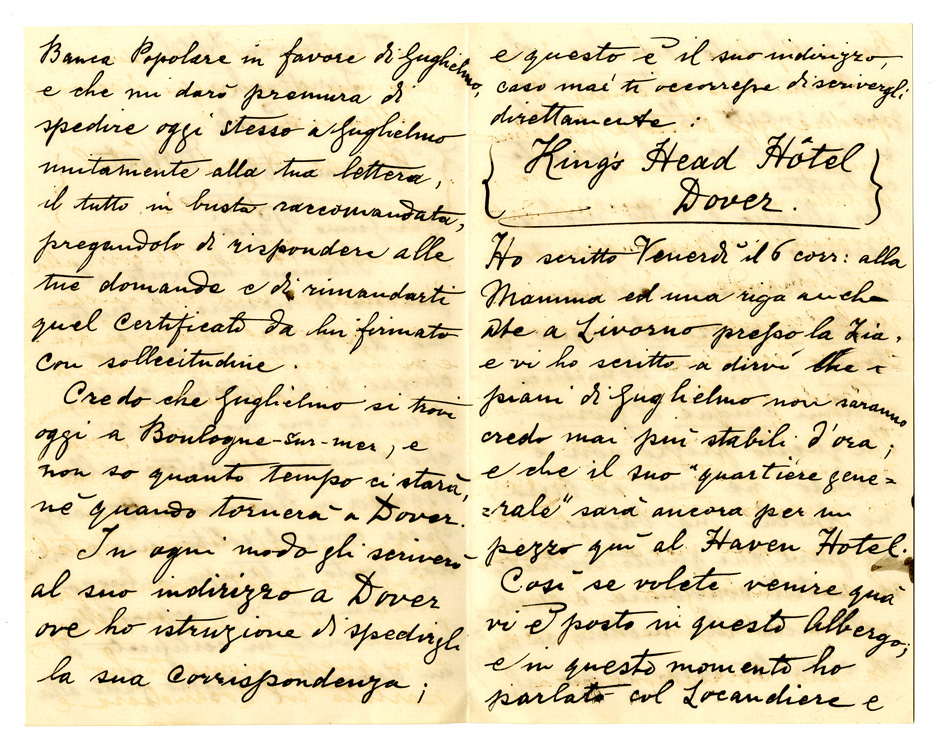 Banca Popolare in favore di Guglielmo,
e che mi darò premura di
spedire oggi stesso a Guglielmo
unitamente alla tua lettera,
il tutto in busta raccomandata,
pregandolo di rispondere alle
tue domande e di rimandarti
quel Certificato da lui firmato
con sollecitudine.
Credo che Guglielmo si trovi
oggi a Boulogne-sur-mer, e
non so quanto tempo ci starà,
nè quando tornerà a Dover.
In ogni modo gli scriverò
al suo indirizzo a Dover
ove ho istruzione di spedirgli
la sua Corrispondenza;
e questo è il suo indirizzo,
caso mai ti occorresse di scrivergli
direttamente:
{ King's Head Hôtel
Dover. }
Ho scritto Venerdì il 6 corr: alla
Mamma ed una riga anche
a te a Livorno presso la Zia,
e vi ho scritto a dirvi che i
piani di Guglielmo non saranno
credo mai più stabili d'ora;
e che il suo "quartiere gene=
=rale" sarà ancora per un
pezzo quì al Haven Hotel.
Così se volete venire quà
vi è posto in questo Albergo;
e in questo momento ho
parlato col Locandiere e